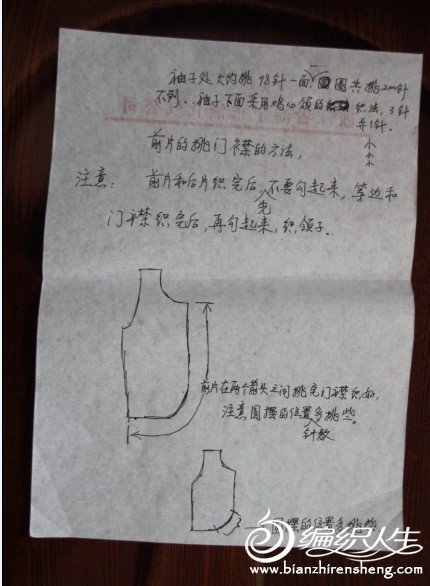 袖子处大约挑98针一面,一圈共挑200针
不到。袖子下面采用鸡心领的织法,3针
并1针.
前片的挑门襟的方法,
注意: 前片和后片织完后,先不要勾起来,等边和
门襟织完后,再勾起来,织领子.
前片在两个箭头之间挑完门襟织好,
注意圆摆的位置多挑些针数。
圆摆的位置多挑些
编织人生
www.bianzhirensheng.com